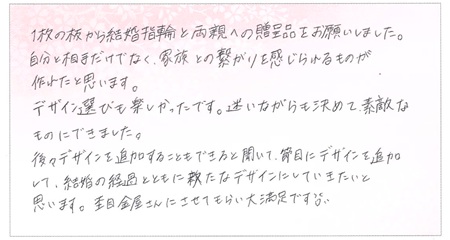 1枚の板から結婚指輪と両親への贈呈品をお願いしました。
自分と相手だけでなく、家族との繋がりを感じられるものが
作れたと思います。
デザイン選びも楽しかったです。迷いながらも決めて、素敵な
ものにできました。
後々デザインを追加することもできると聞いて、節目にデザインを追加
して、結婚の経過とともに新たなデザインにしていきたいと
思います。杢目金屋さんにさせてもらい大満足です